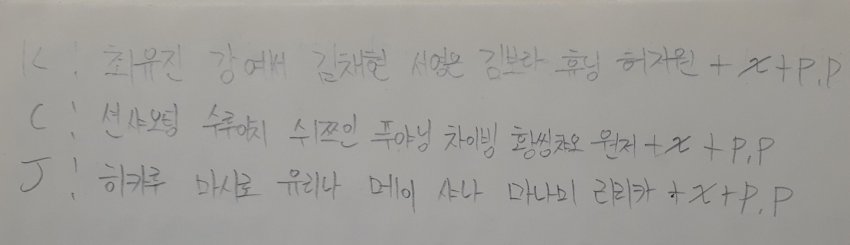 K: 최유진 강예서 김채현 서영은 김보라 휴닝 허지원 + x + P.P
C: 션샤오팅 수루이치 쉬쯔인 푸야닝 차이빙 황씽챠오 원저 + x + P.P
J: 히카루 마시로 유리나 메이 샤나 마나미 리리카 + x + P.P